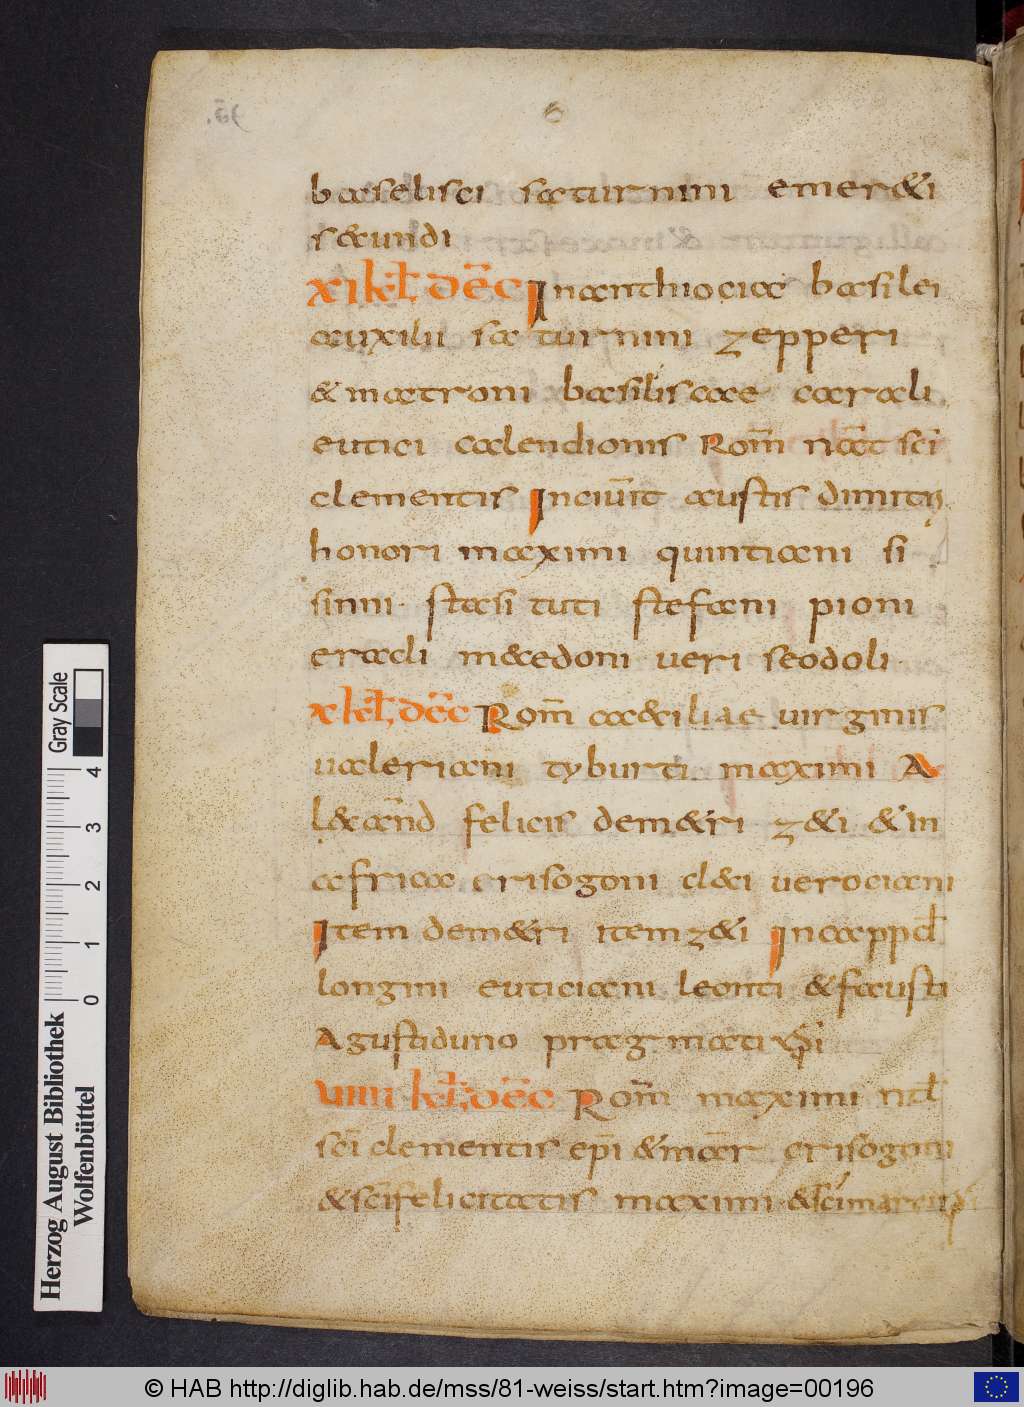 baselisci saturnini emer&i
s&cundi
XI kł dēc In anthiocia basilei
auxilii saturnini zepperi
& matroni basiliscae carali
eutici calendionis Rom̄ nat̄ sc̄i
clementis In ciūit austis dimitii
honori maximi quintiani si
sinni · stasi tuti stefani pioni
eracli macedoni ueri seodoli
X kł dēc Rom̄ caeciliae uirginis
ualeriani tyburti maximi A
lecan̄d felicis dem&ri z&i & in
africa crisogoni cl&i uerociani
Item dem&ri item z&i In cappđ
longini euticiani leonti & fausti
Agustiduno pragmati
VIIII kł dēc Rom̄ maximi nđ
sc̄i clementis ep̄i & mar̄ crisogoni
& sc̄i felicitatis maximi & sc̄i
6
Herzog August Bibliothek
Wolfenbüttel
Gray Scale
0 1 2 3 4
© HAB http://diglib.hab.de/mss/81-weiss/start.htm?image=00196